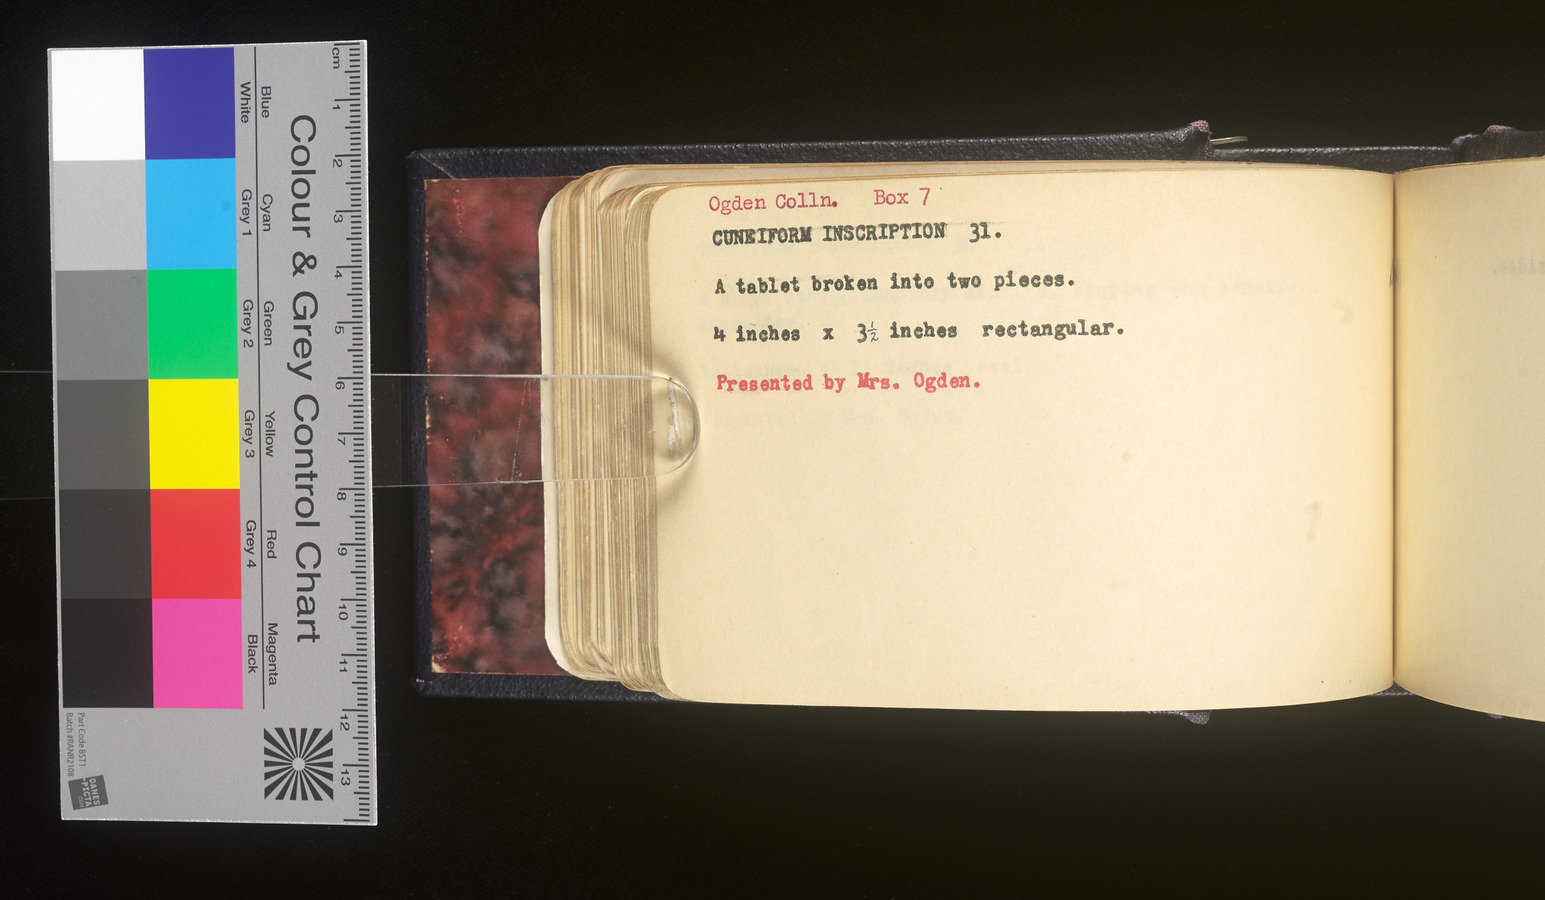 Ogden Colln. Box 7
CUNEIFORM INSCRIPTION 31.
A tablet broken into two pieces.
4 inches x 3½ inches rectangular.
Presented by Mrs. Ogden.
Colour & Grey Control Chart
Blue Cyan Green Yellow Red Magenta
White Grey 1 Grey 2 Grey 3 Grey 4 Black
cm 1 2 3 4 5 6 7 8 9 10 11 12 13
Part Code BST1
DANES
-PICTA
.COM